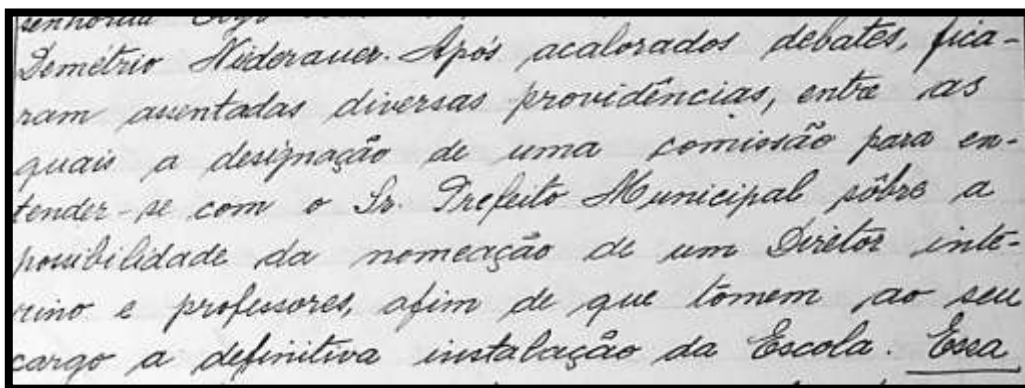 Demétrio Niederauer. Após acalorados debates, fica-
ram assentadas diversas providências, entre as
quais a designação de uma comissão para en-
tender-se com o Sr. Prefeito Municipal sôbre a
possibilidade da nomeação de um Diretor inte-
rino e professores, afim de que tomem ao seu
cargo a definitiva instalação da Escola. Essa